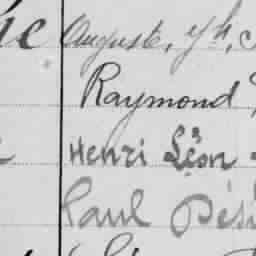 Auguste, yh,
Raymond
Henri Léon
Paul Dési